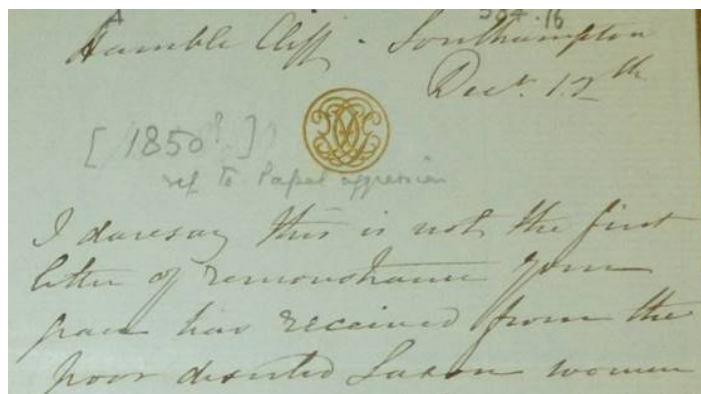 A 504.16
Hamble Cliff - Southampton
Decr. 12th
[1850?]
ref to Papal aggression
I daresay this is not the first
letter of remonstrance your
grace has received from the
poor deserted Saxon women